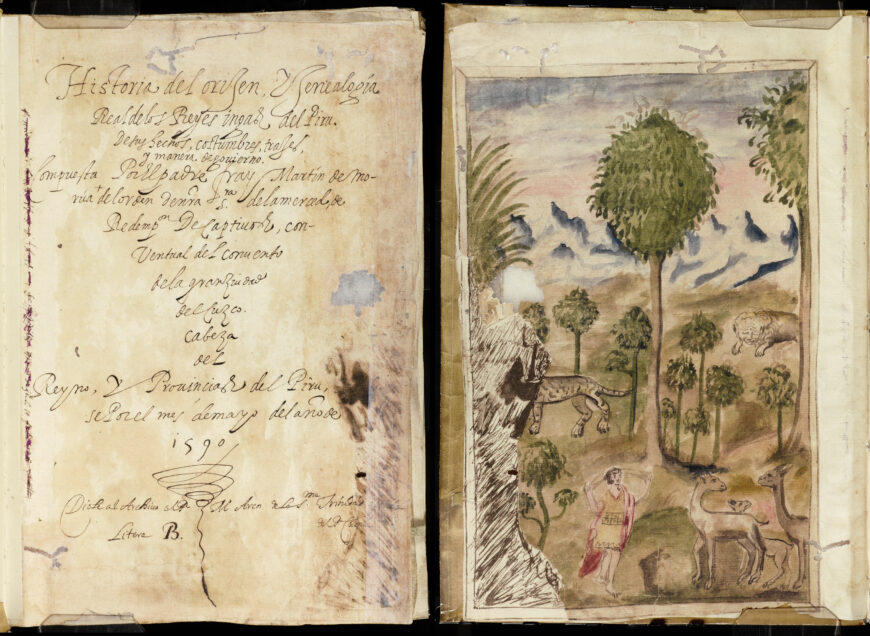 Historia del origen, Y Genealogia
Real de los Reyes ingas del Piru.
De sus hechos, costumbres, trajes,
y manera de gouierno.
Compuesta Por el padre fray Martin de Mo-
rua del orden de nra Sra. de la merced, de
Redempon De Captiuos, con-
Ventual del conuento
de la gran ziudad
del Cuzco.
Cabeza
del
Reyno, Y Prouincias del Piru,
el mes de mayo del año de
1590
Archivo
Litera B.